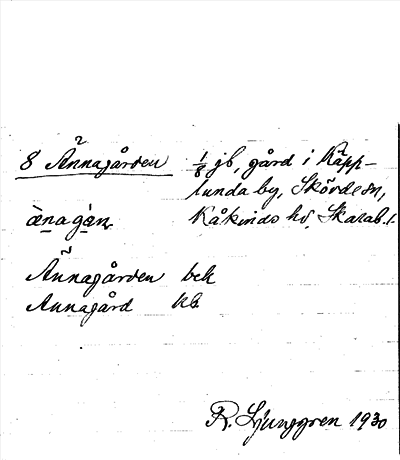 8 Ännagården 1/8 jb, gård i Käpp-
lunda by, Skövde sn,
æ̀nagàn. Kåkinds hd, Skarab. l.
Ännagården bek
Annagård kb.
R. Ljunggren 1930